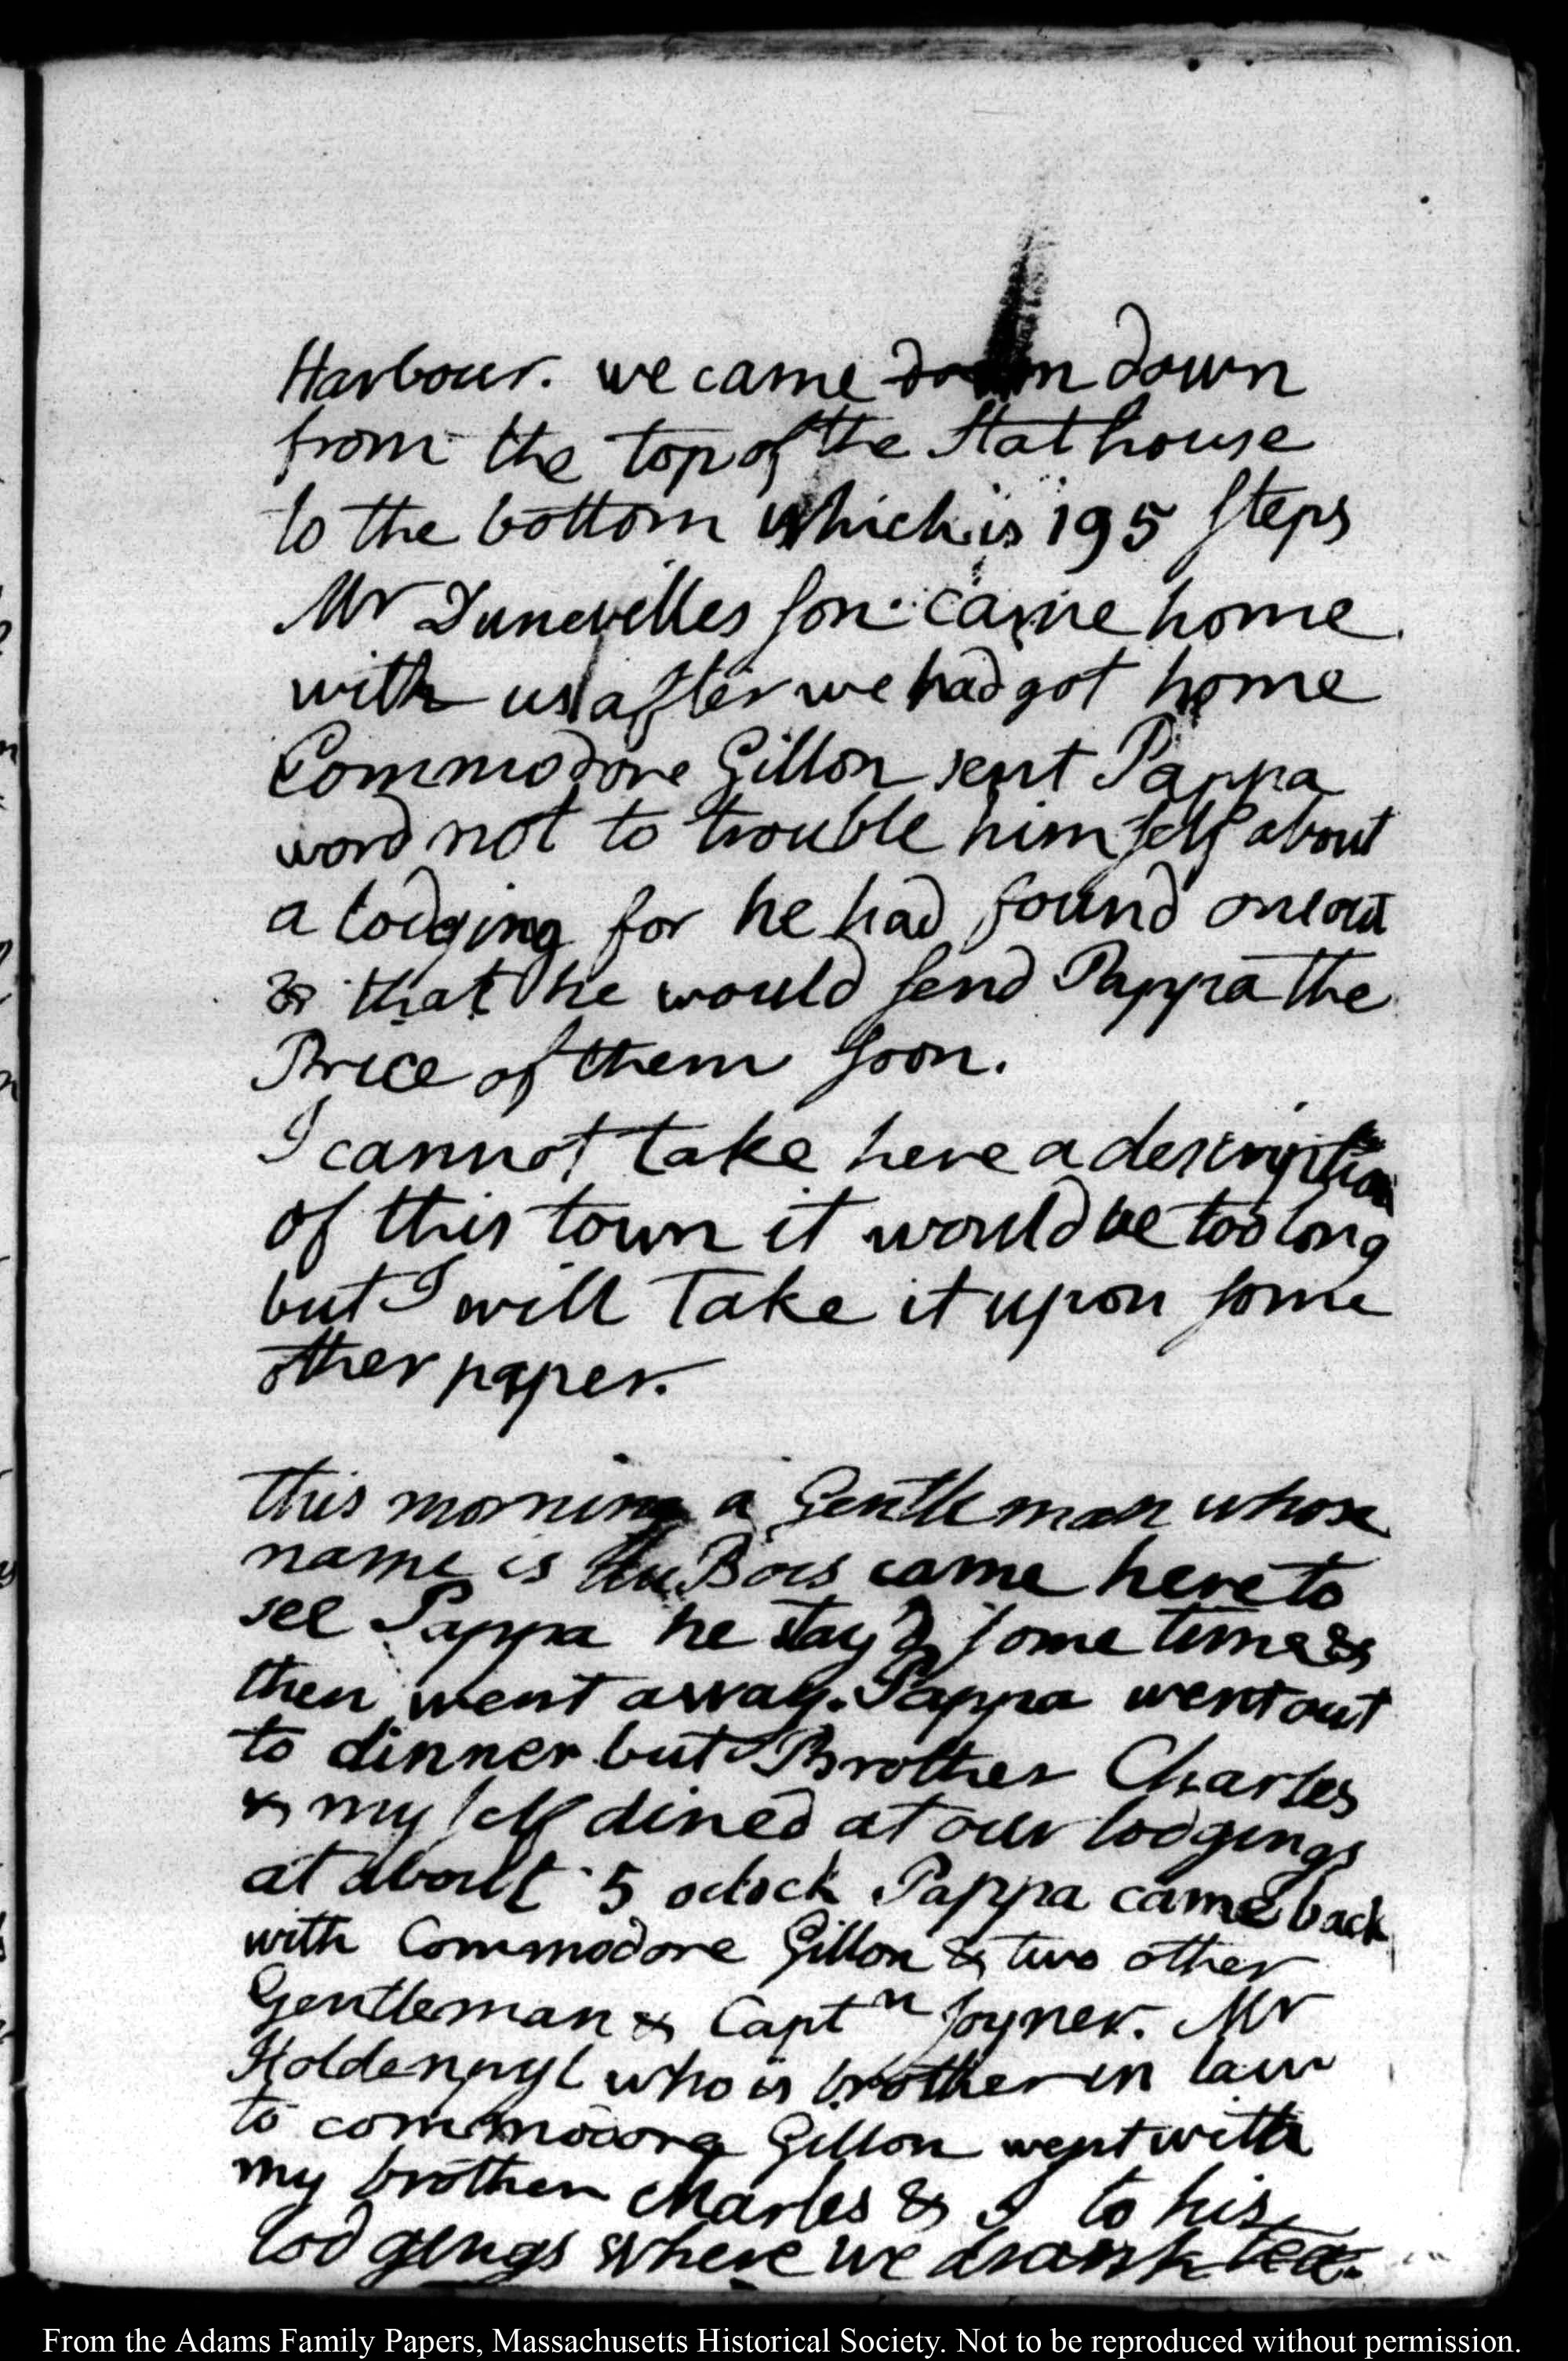 Harbour. we came down down
from the top of the Stat house
to the bottom which is 195 steps
Mr Dunevilles son came home
with us after we had got home
Commodore Gillon sent Pappa
word not to trouble himself about
a lodging for he had found one out
& that he would send Pappa the
Price of them soon.
I cannot take here a description
of this town it would be too long
but I will Take it upon some
other paper.
this morning a Gentleman whose
name is Bois came here to
see Pappa he stay'd some time &
then went away. Pappa went out
to dinner but Brother Charles
& my self dined at our lodgings
at about 5 oclock Pappa came back
with Commodore Gillon & two other
Gentleman & Captn Joyner. Mr
Holdenpyl who is brother in law
to commodore Gillon went with
my brother Charles & I to his
lodgings where we drank tea.
From the Adams Family Papers, Massachusetts Historical Society. Not to be reproduced without permission.